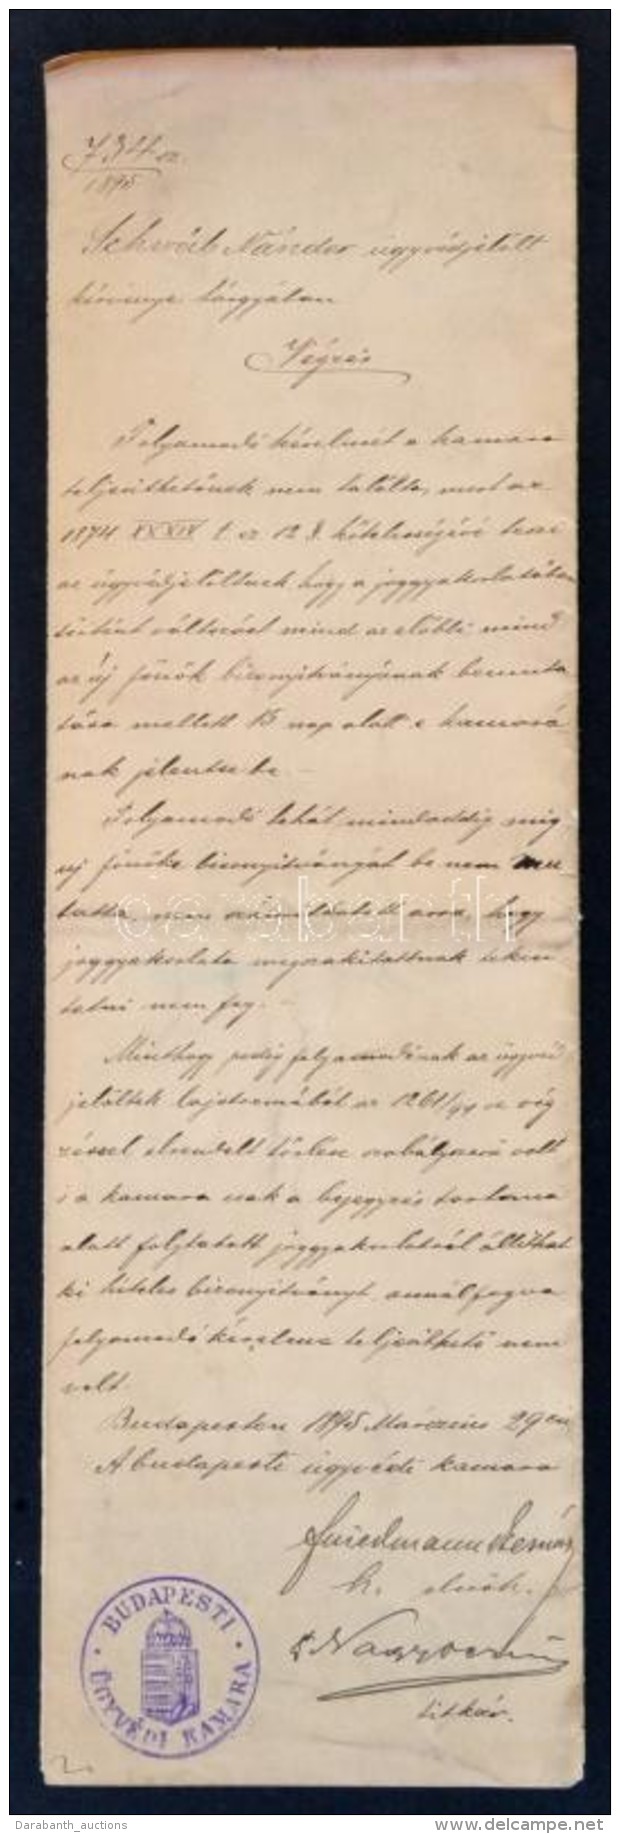 734 sz.
1895
Schwáb Nándor ügyvédjelölt
kérvénye tárgyában
Végzés
Folyamodó kérelmét a kamara
teljesithetőnek nem találta, mert az
1874 XXXIV t. cz 12 § kötelességévé teszi
az ügyvédjelöltnek hogy a joggyakorlatában
történt változást mind az előbbi mind
az új főnök bizonyitványának bemuta
tása mellett 15 nap alatt a kamará
nak jelentse be. –
Folyamodó tehát mindaddig mig
uj főnöke bizonyitványát be nem mu
tatta, nem számithatott arra, hogy
joggyakorlata megszakitottnak tekin
tetni nem fog. –
Minthogy pedig folyamodónak az ügyvéd
jelöltek lajstromából az 1261/94 sz vég
zéssel elrendelt törlése szabályszerü volt
s a kamara csak a bejegyzés tartama
alatt folytatott joggyakorlatról állithat
ki hiteles bizonyitványt, annálfogva
folyamodó kérelme teljesithető nem
volt.
Budapesten 1895 Márczius 29 én
A budapesti ügyvédi kamara
Friedmann Bernát
h. elnök.
Nagy
titkár.
BUDAPESTI ÜGYVÉDI KAMARA
darabanth
Darabanth_auctions
www.delcampe.net